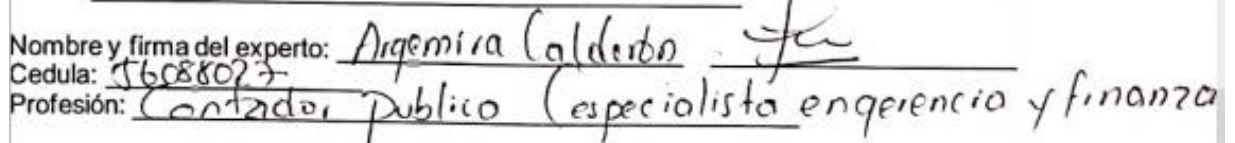 Nombre y firma del experto: Argemira Calderón
Cedula: 56088027
Profesión: Contador publico (especialista en gerencia y finanza